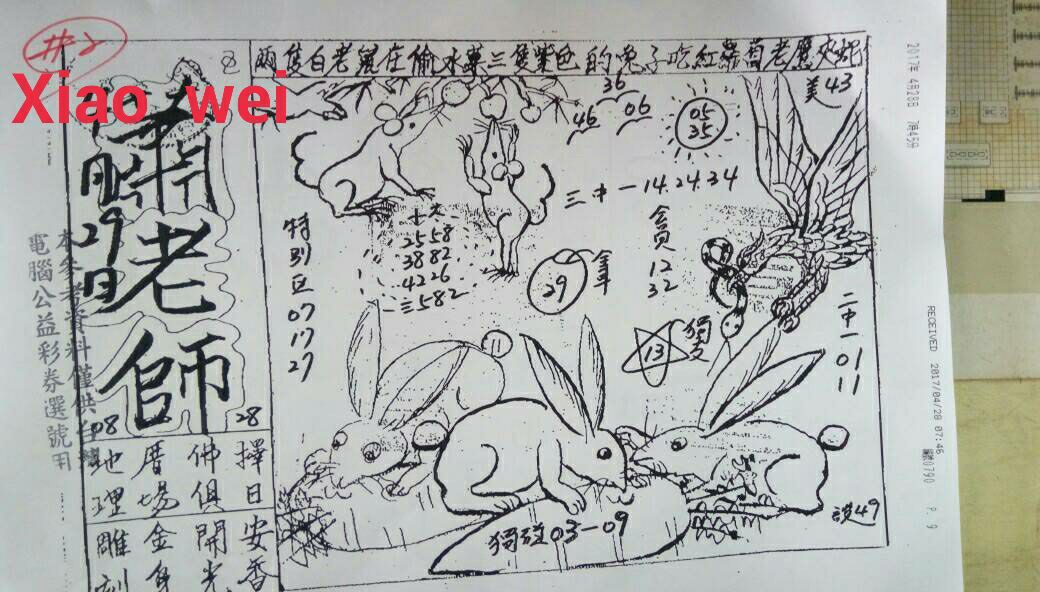 #2
Xiao wei
兩隻白老鼠在偷水菓三隻紫色的兔子吃紅蘿蔔老鷹夾蛇
2017年 4月28日 7時45分
美43
36
46
06
05
35
三中一14.24.34
特別區
07
17
27
2558
3882
4226
三582
29
12
32
獨支
13
二中一
01
11
11
老師
29日
本參考資料僅供
電腦公益彩券選號用
08
28
擇日
佛俱
厝場
地理
安香
開光
金身
雕刻
獨發03-09
49
RECEIVED 2017/04/28 07:46
P. 9